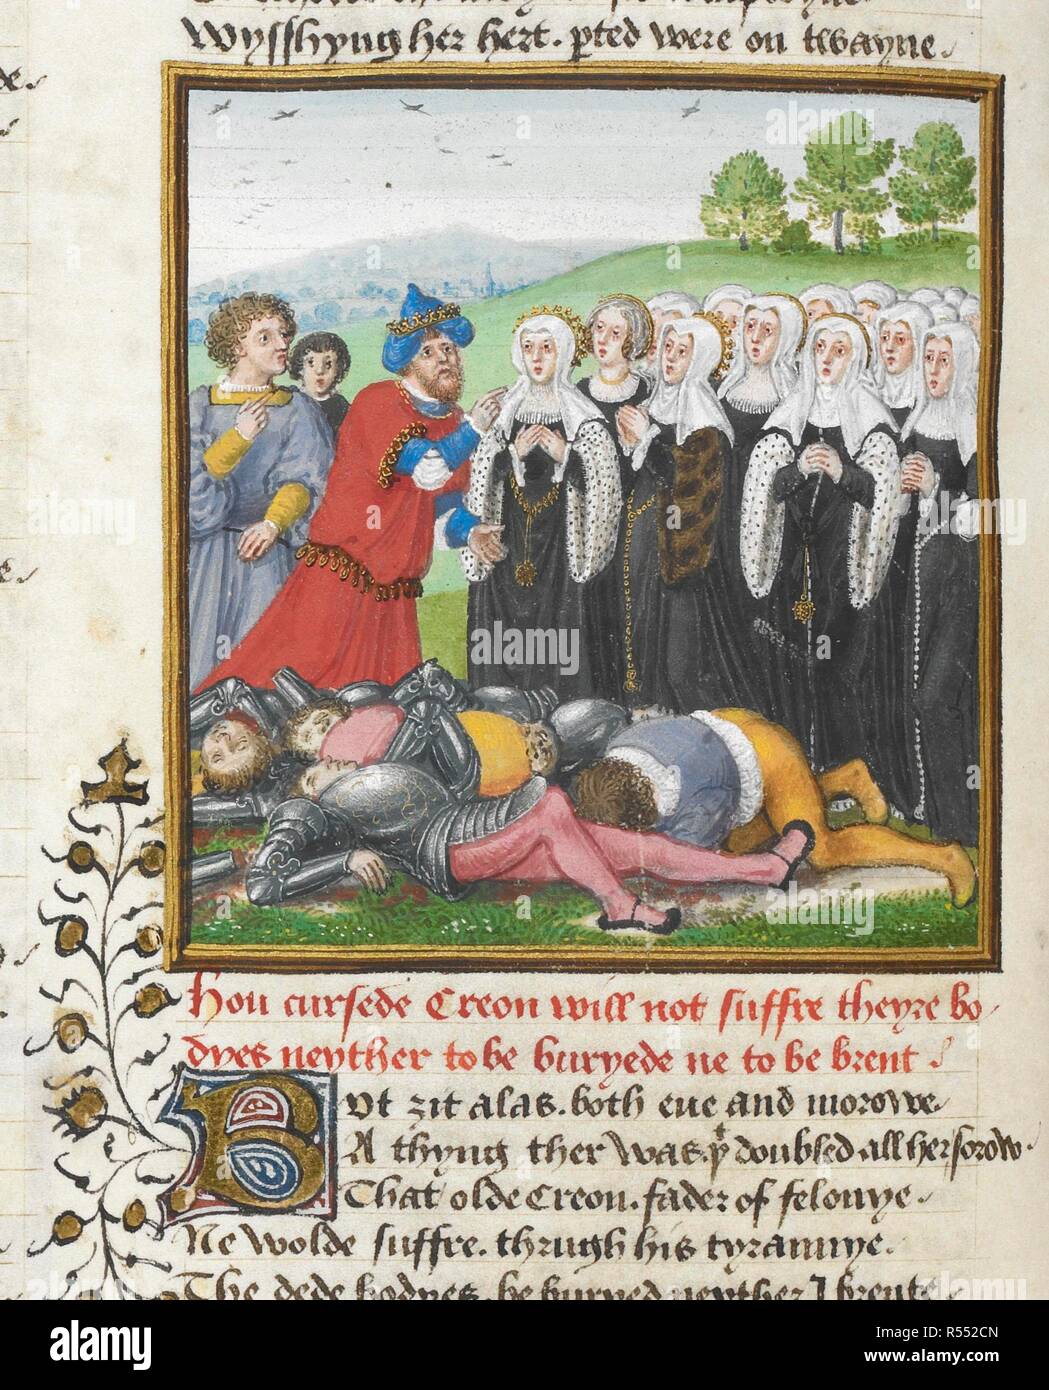 Wysshyng her hert. pted were on twayne
Hou cursede Creon will not suffre theyre bo
dyes neyther to be buryede ne to be brent
But zit alas. both eue and morowe
A thyng ther was. þt doubled all her sorow.
That olde Creon. fader of felonye
Ne wolde suffre. thrugh his tyrannye.
The dede bodyes. be buryed neyther
alamy
Image ID: R552CN
www.alamy.com